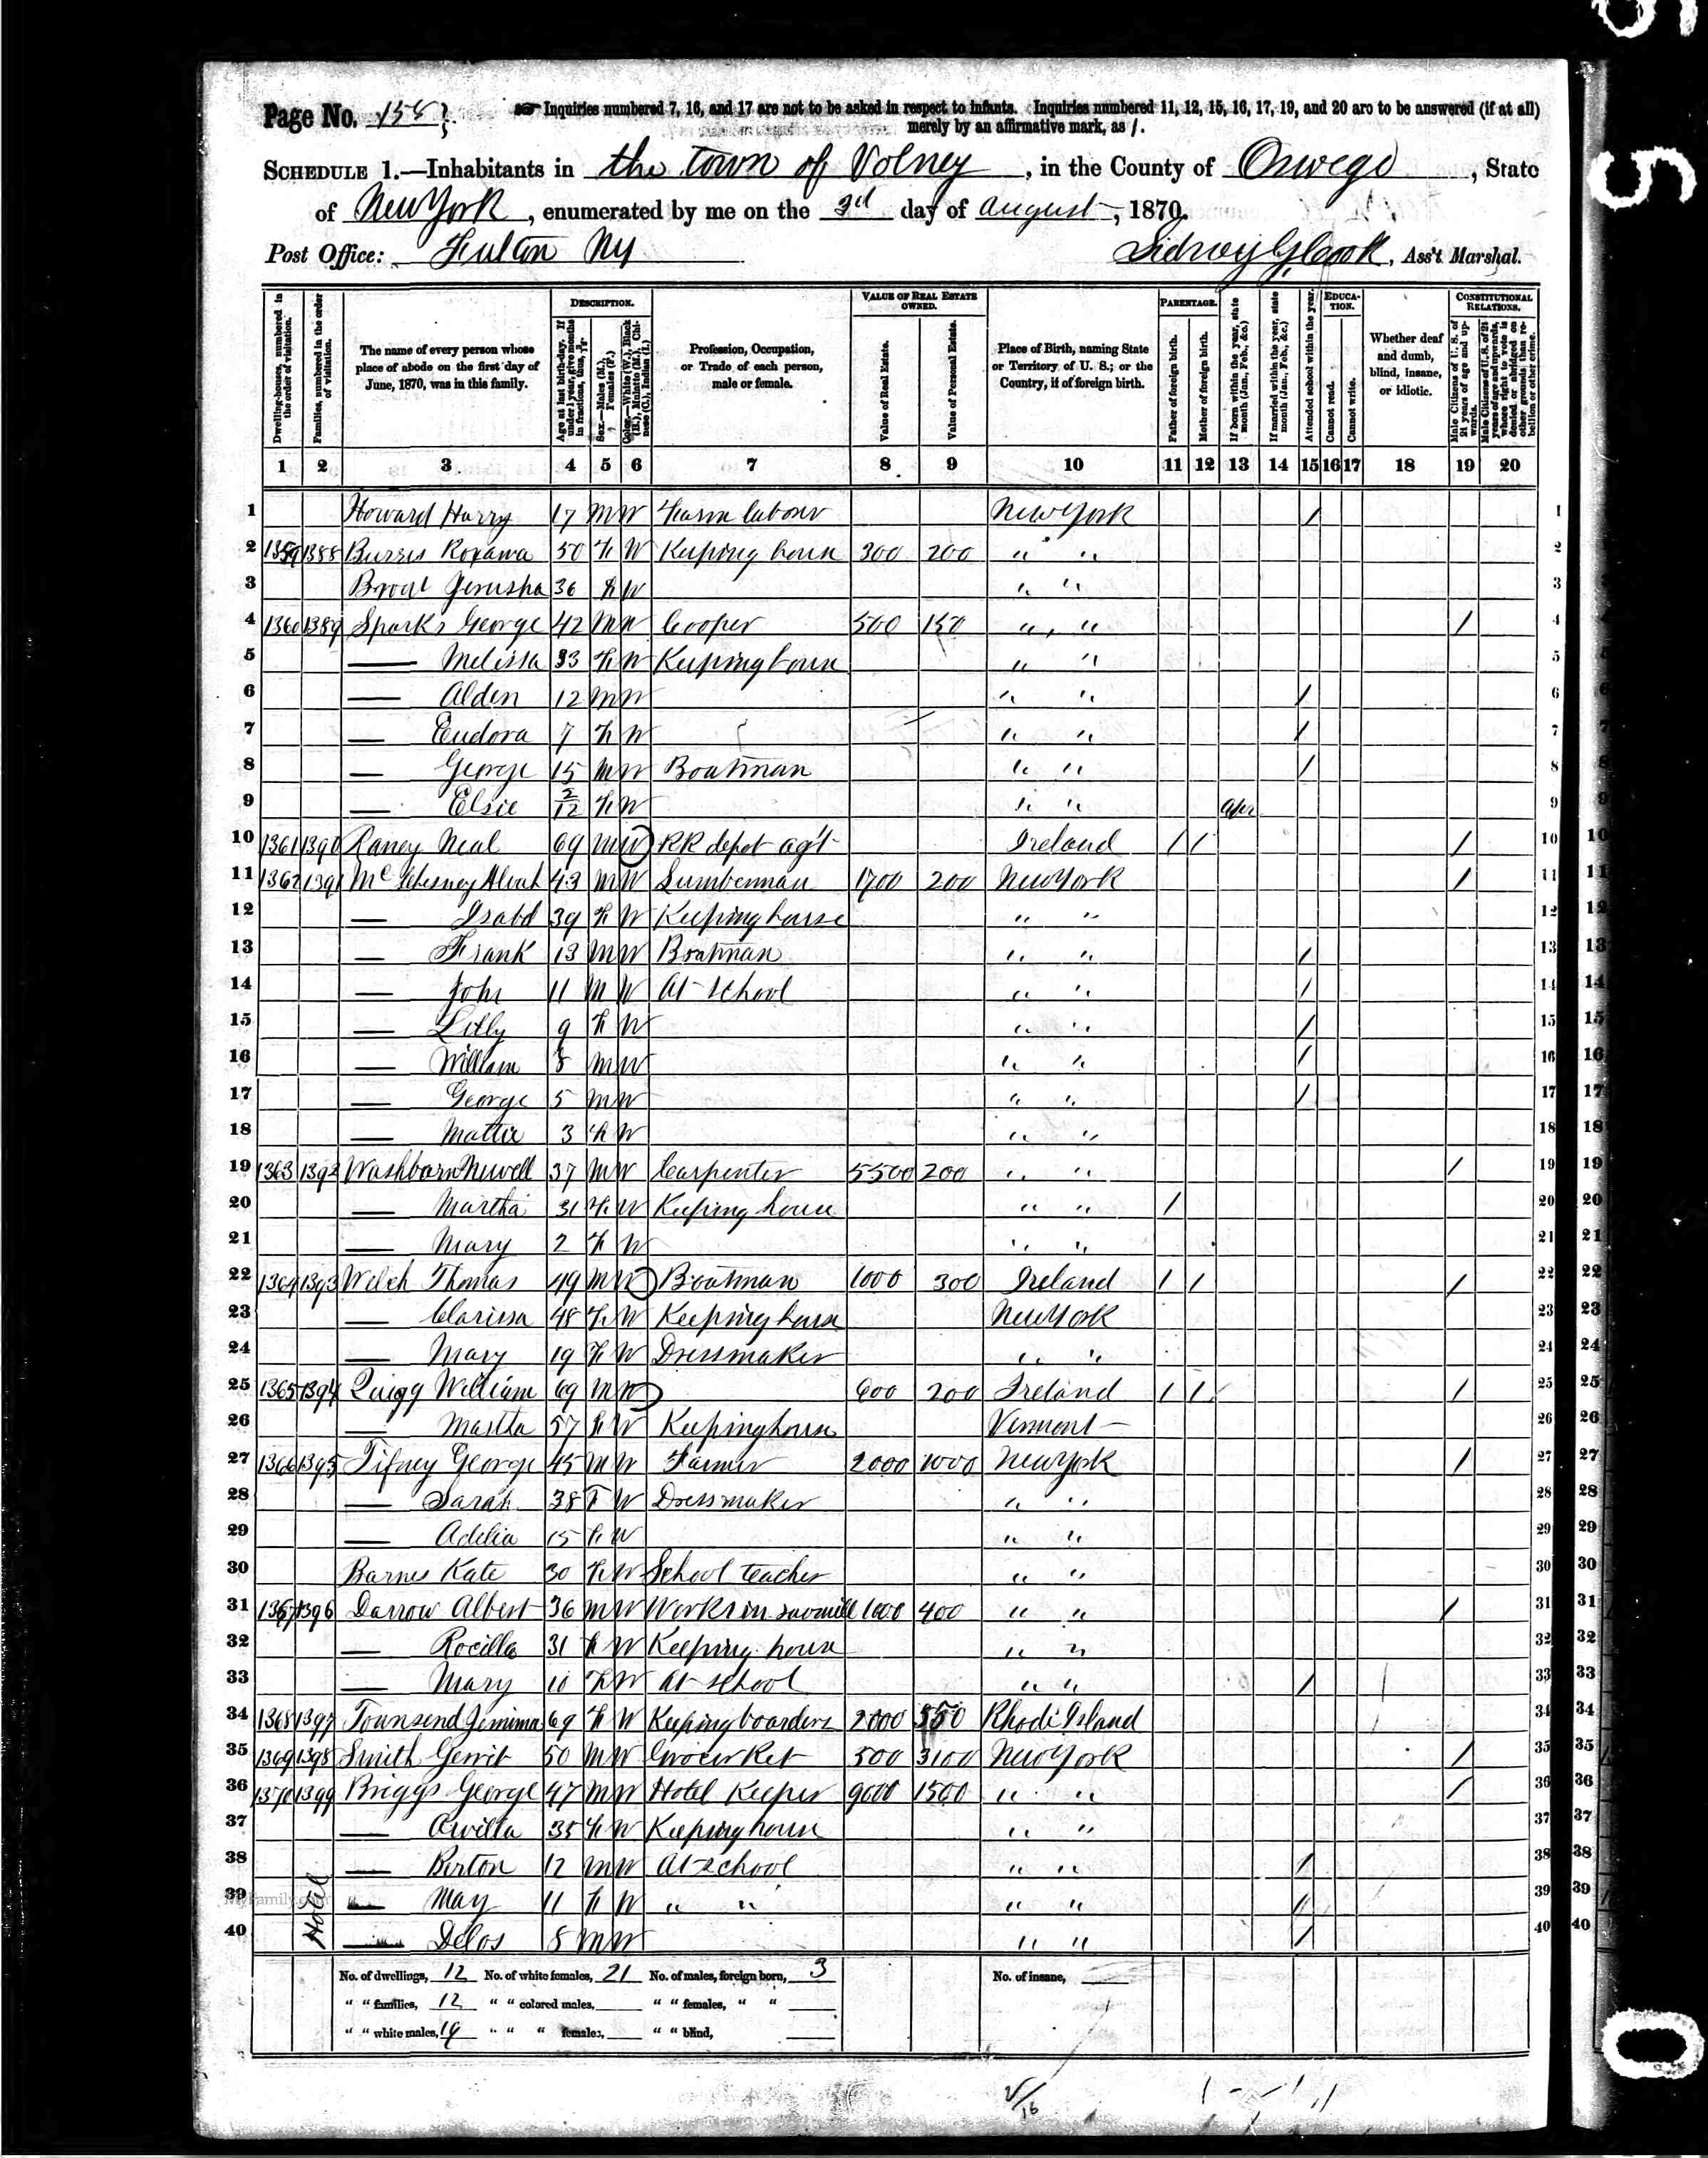 Page No. 158
Inquiries numbered 7, 16, and 17 are not to be asked in respect to infants. Inquiries numbered 11, 12, 15, 16, 17, 19, and 20 are to be answered (if at all)
merely by an affirmative mark, as /.
SCHEDULE 1.—Inhabitants in the town of Volney, in the County of Oswego, State
of New York, enumerated by me on the 3d day of August, 1870.
Post Office: Fulton NY Sidney G Cook, Ass't Marshal.
DESCRIPTION. VALUE OF REAL ESTATE OWNED. PARENTAGE. EDUCATION. CONSTITUTIONAL RELATIONS.
Dwelling-houses, numbered in the order of visitation.
Families, numbered in the order of visitation.
The name of every person whose place of abode on the first day of June, 1870, was in this family.
Age at last birth-day. If under 1 year, give months in fractions, thus, 3/12
Sex.—Males (M.), Females (F.)
Color.—White (W.), Black (B.), Mulatto (M.), Chinese (C.), Indian (I.)
Profession, Occupation, or Trade of each person, male or female.
Value of Real Estate.
Value of Personal Estate.
Place of Birth, naming State or Territory of U. S.; or the Country, if of foreign birth.
Father of foreign birth.
Mother of foreign birth.
If born within the year, state month (Jan., Feb., &c.)
If married within the year, state month (Jan., Feb., &c.)
Attended school within the year.
Cannot read.
Cannot write.
Whether deaf and dumb, blind, insane, or idiotic.
Male Citizens of U. S. of 21 years of age and upwards.
Male Citizens of U. S. of 21 years of age and upwards, whose right to vote is denied or abridged on other grounds than rebellion or other crime.
1 2 3 4 5 6 7 8 9 10 11 12 13 14 15 16 17 18 19 20
1 Howard Harry 17 M W Farm labour New York / 1
2 1359 1388 Burris Roxana 50 F W Keeping house 300 200 " " 2
3 Jerusha 36 F W " " 3
4 1360 1389 Sparks George 42 M W Cooper 500 150 " " / 4
5 — Melissa 33 F W Keeping house " " 5
6 — Alden 12 M W " " / 6
7 — Eudora 7 F W " " / 7
8 — George 15 M W Boatman " " / 8
9 — Elsie 2/12 F W " " Apr 9
10 1361 1390 Raney Neal 69 M W RR depot agt Ireland / / / 10
11 1362 1391 McChesney Alvah 43 M W Lumberman 1700 200 New York / 11
12 — Isabel 39 F W Keeping house " " 12
13 — Frank 13 M W Boatman " " / 13
14 — John 11 M W At school " " / 14
15 — Lilly 9 F W " " / 15
16 — William 8 M W " " / 16
17 — George 5 M W " " / 17
18 — Mattie 3 F W " " 18
19 1363 1392 Washborn Newell 37 M W Carpenter 5500 200 " " / 19
20 — Martha 31 F W Keeping house " " / 20
21 — Mary 2 F W " " 21
22 1364 1393 Welch Thomas 49 M W Boatman 1000 300 Ireland / / / 22
23 — Clarissa 48 F W Keeping house New York 23
24 — Mary 19 F W Dressmaker " " 24
25 1365 1394 Quigg William 69 M W 600 200 Ireland / / / 25
26 — Martha 57 F W Keeping house Vermont 26
27 1366 1395 Tifney George 45 M W Farmer 2000 1000 New York / 27
28 — Sarah 38 F W Dressmaker " " 28
29 — Adelia 15 F W " " 29
30 Barnes Kate 30 F W School teacher " " 30
31 1367 1396 Darrow Albert 36 M W Works in sawmill 1000 400 " " / 31
32 — Rocilla 31 F W Keeping house " " 32
33 — Mary 10 F W At school " " / 33
34 1368 1397 Townsend Jemima 69 F W Keeping boarders 2000 550 Rhode Island 34
35 1369 1398 Smith Gerrit 50 M W Grocer Ret 500 3100 New York / 35
36 1370 1399 Briggs George 47 M W Hotel Keeper 9000 1500 " " / 36
37 — Orvilla 35 F W Keeping house " " 37
38 — Berton 12 M W At school " " / 38
39 Hotel — May 11 F W " " " " / 39
40 — Delos 8 M W " " / 40
No. of dwellings, 12 No. of white females, 21 No. of males, foreign born, 3 No. of insane,
" " families, 12 " " colored males, " " females, " "
" " white males, 19 " " " females, " " blind,
MyFamily.com